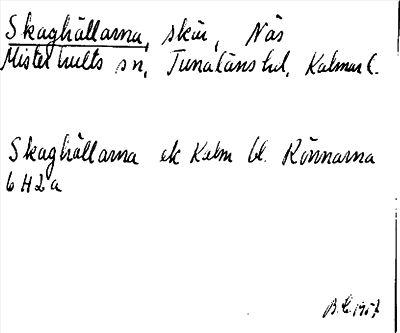 Skaghällarna, skär, Näs
Misterhults sn, Tunaläns hd, Kalmar l.
Skaghällarna ek Kalm bl. Rönnarna
6 H 2 a
1957